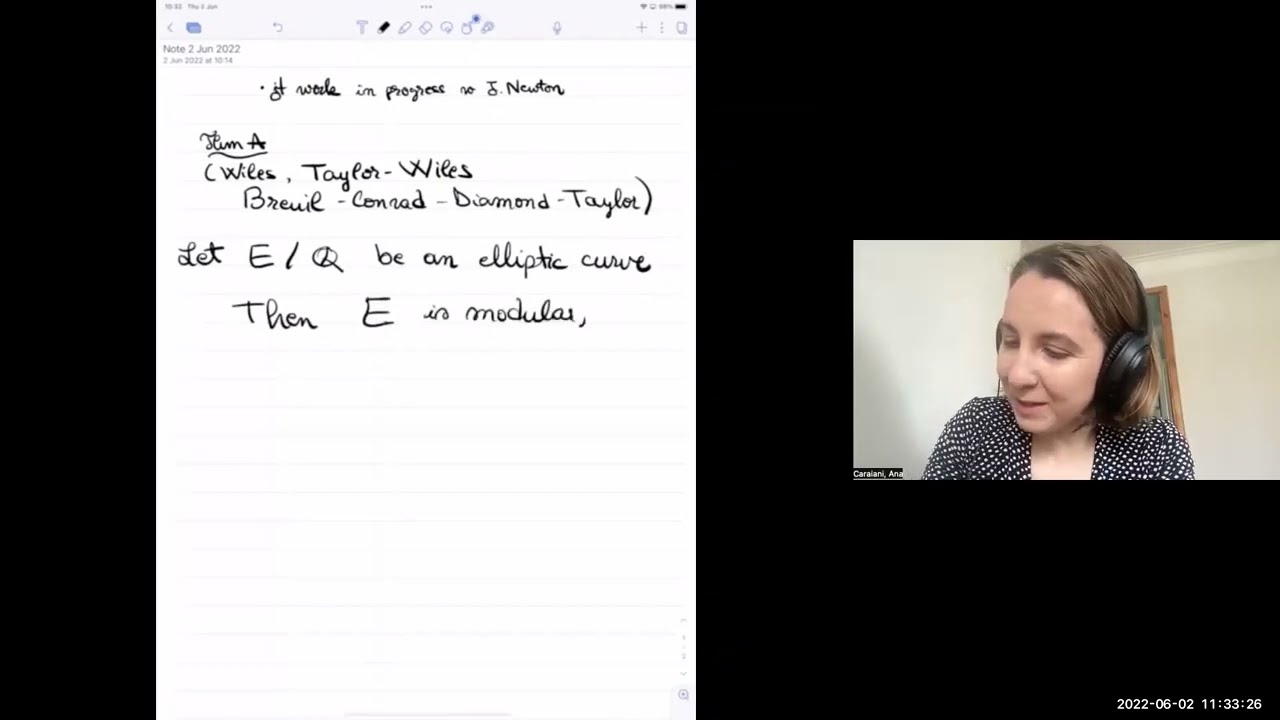 10:33 Thu 2 Jun
98%
Note 2 Jun 2022
2 Jun 2022 at 10:14
• jt work in progress w J. Newton
Thm A
(Wiles, Taylor-Wiles
Breuil-Conrad-Diamond-Taylor)
Let E/ℚ be an elliptic curve
Then E is modular,
Caraiani, Ana
2022-06-02 11:33:26